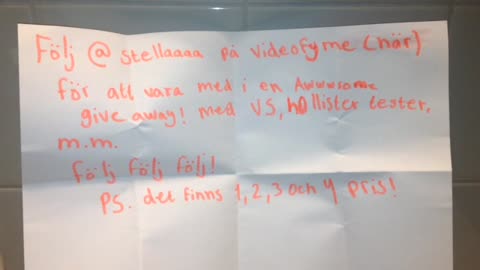 Följ @ stellaaaa på videofyme (här)
för att vara med i en Awwwsome
give away! med VS, hollister tester,
m.m.
följ följ följ!
PS. det finns 1, 2, 3 och 4 pris!